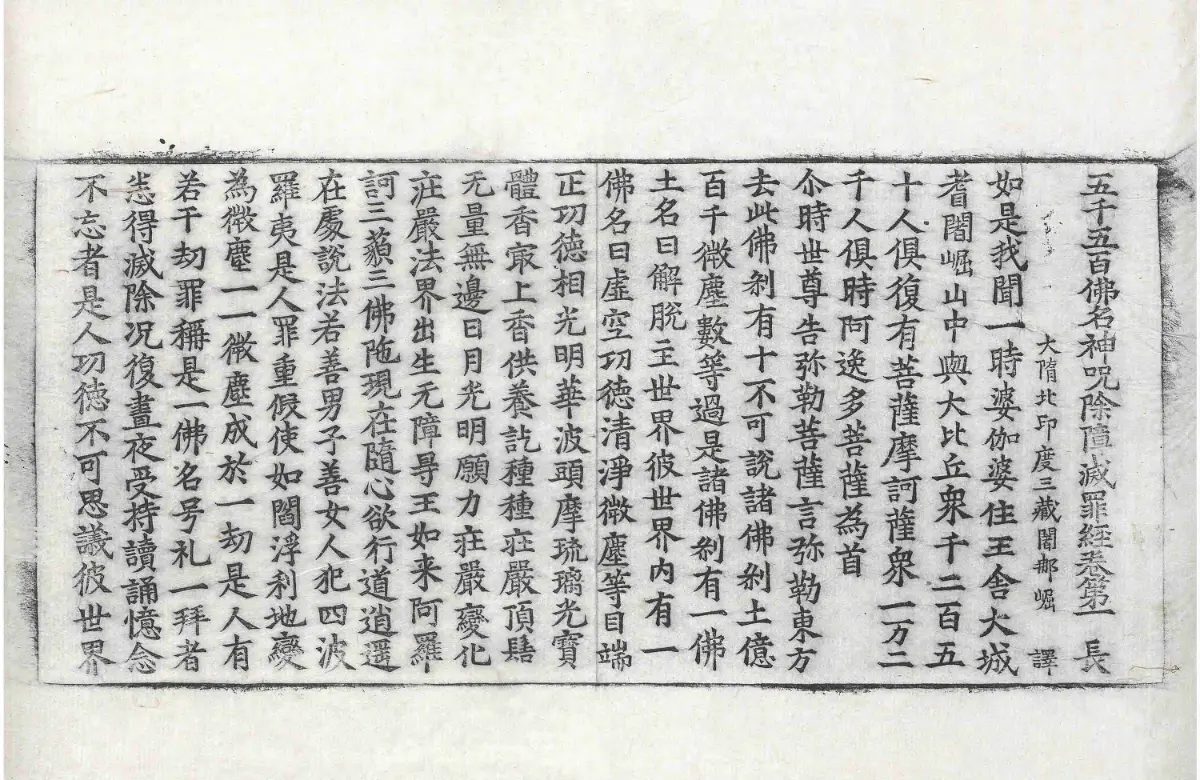 五千五百佛名神呪除障滅罪經卷第一 長
大隋北印度三藏闍那崛 譯
如是我聞一時婆伽婆住王舍大城
耆闍崛山中與大比丘衆千二百五
十人俱復有菩薩摩訶薩衆一万二
千人俱時阿逸多菩薩為首
尒時世尊告弥勒菩薩言弥勒東方
去此佛剎有十不可說諸佛剎土億
百千微塵數等過是諸佛剎有一佛
土名曰解脫主世界彼世界内有一
佛名曰虛空功德清淨微塵等目端
正功德相光明華波頭摩琉璃光寶
體香㝡上香供養訖種種莊嚴頂髻
无量無邊日月光明願力莊嚴變化
莊嚴法界出生无障㝵王如来阿羅
訶三藐三佛陁現在隨心欲行道逍遥
在處說法若善男子善女人犯四波
羅夷是人罪重假使如閻浮利地變
為微塵一一微塵成於一劫是人有
若干劫罪稱是一佛名号礼一拜者
悉得滅除况復晝夜受持讀誦憶念
不忘者是人功德不可思議彼世界